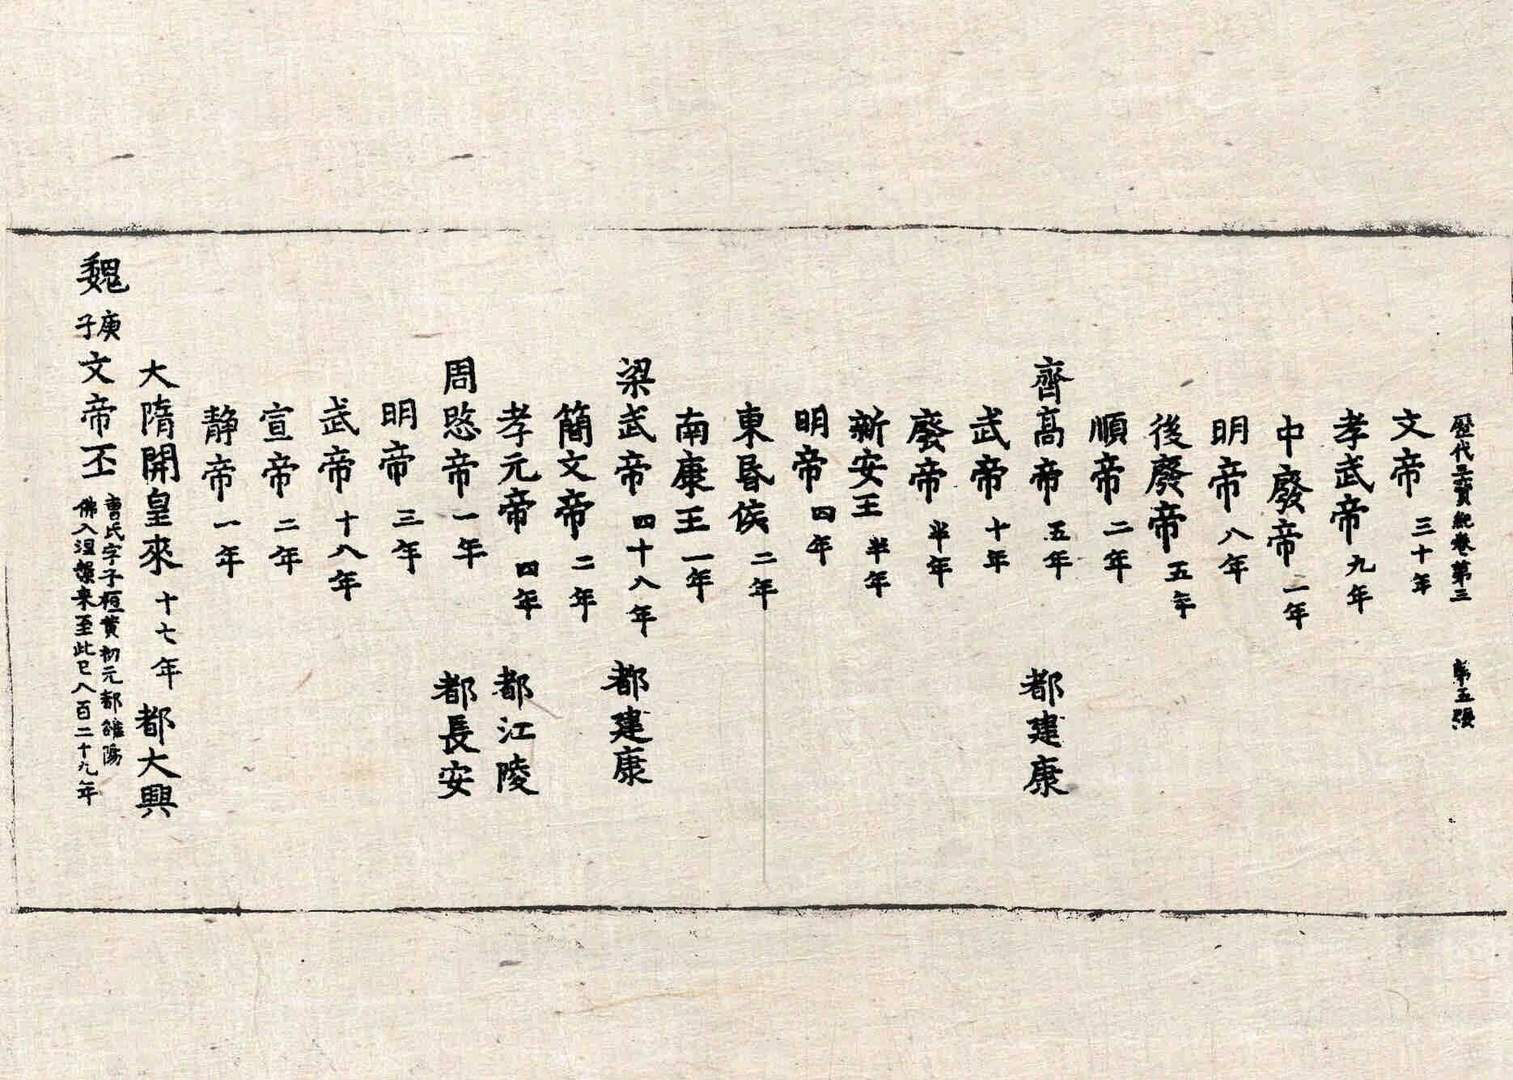 歷代三寶紀卷第三　第五張
文帝三十年
孝武帝九年
中廢帝一年
明帝八年
後廢帝五年
順帝二年
齊高帝五年　都建康
武帝十年
廢帝半年
新安王半年
明帝四年
東昏侯二年
南康王一年
梁武帝四十八年　都建康
簡文帝二年
孝元帝四年　都江陵
周愍帝一年　都長安
明帝三年
武帝十八年
宣帝二年
靜帝一年
大隋開皇來十七年　都大興
魏庚子文帝丕曹氏字子桓黃初元都雒陽
佛入涅槃來至此已八百二十九年